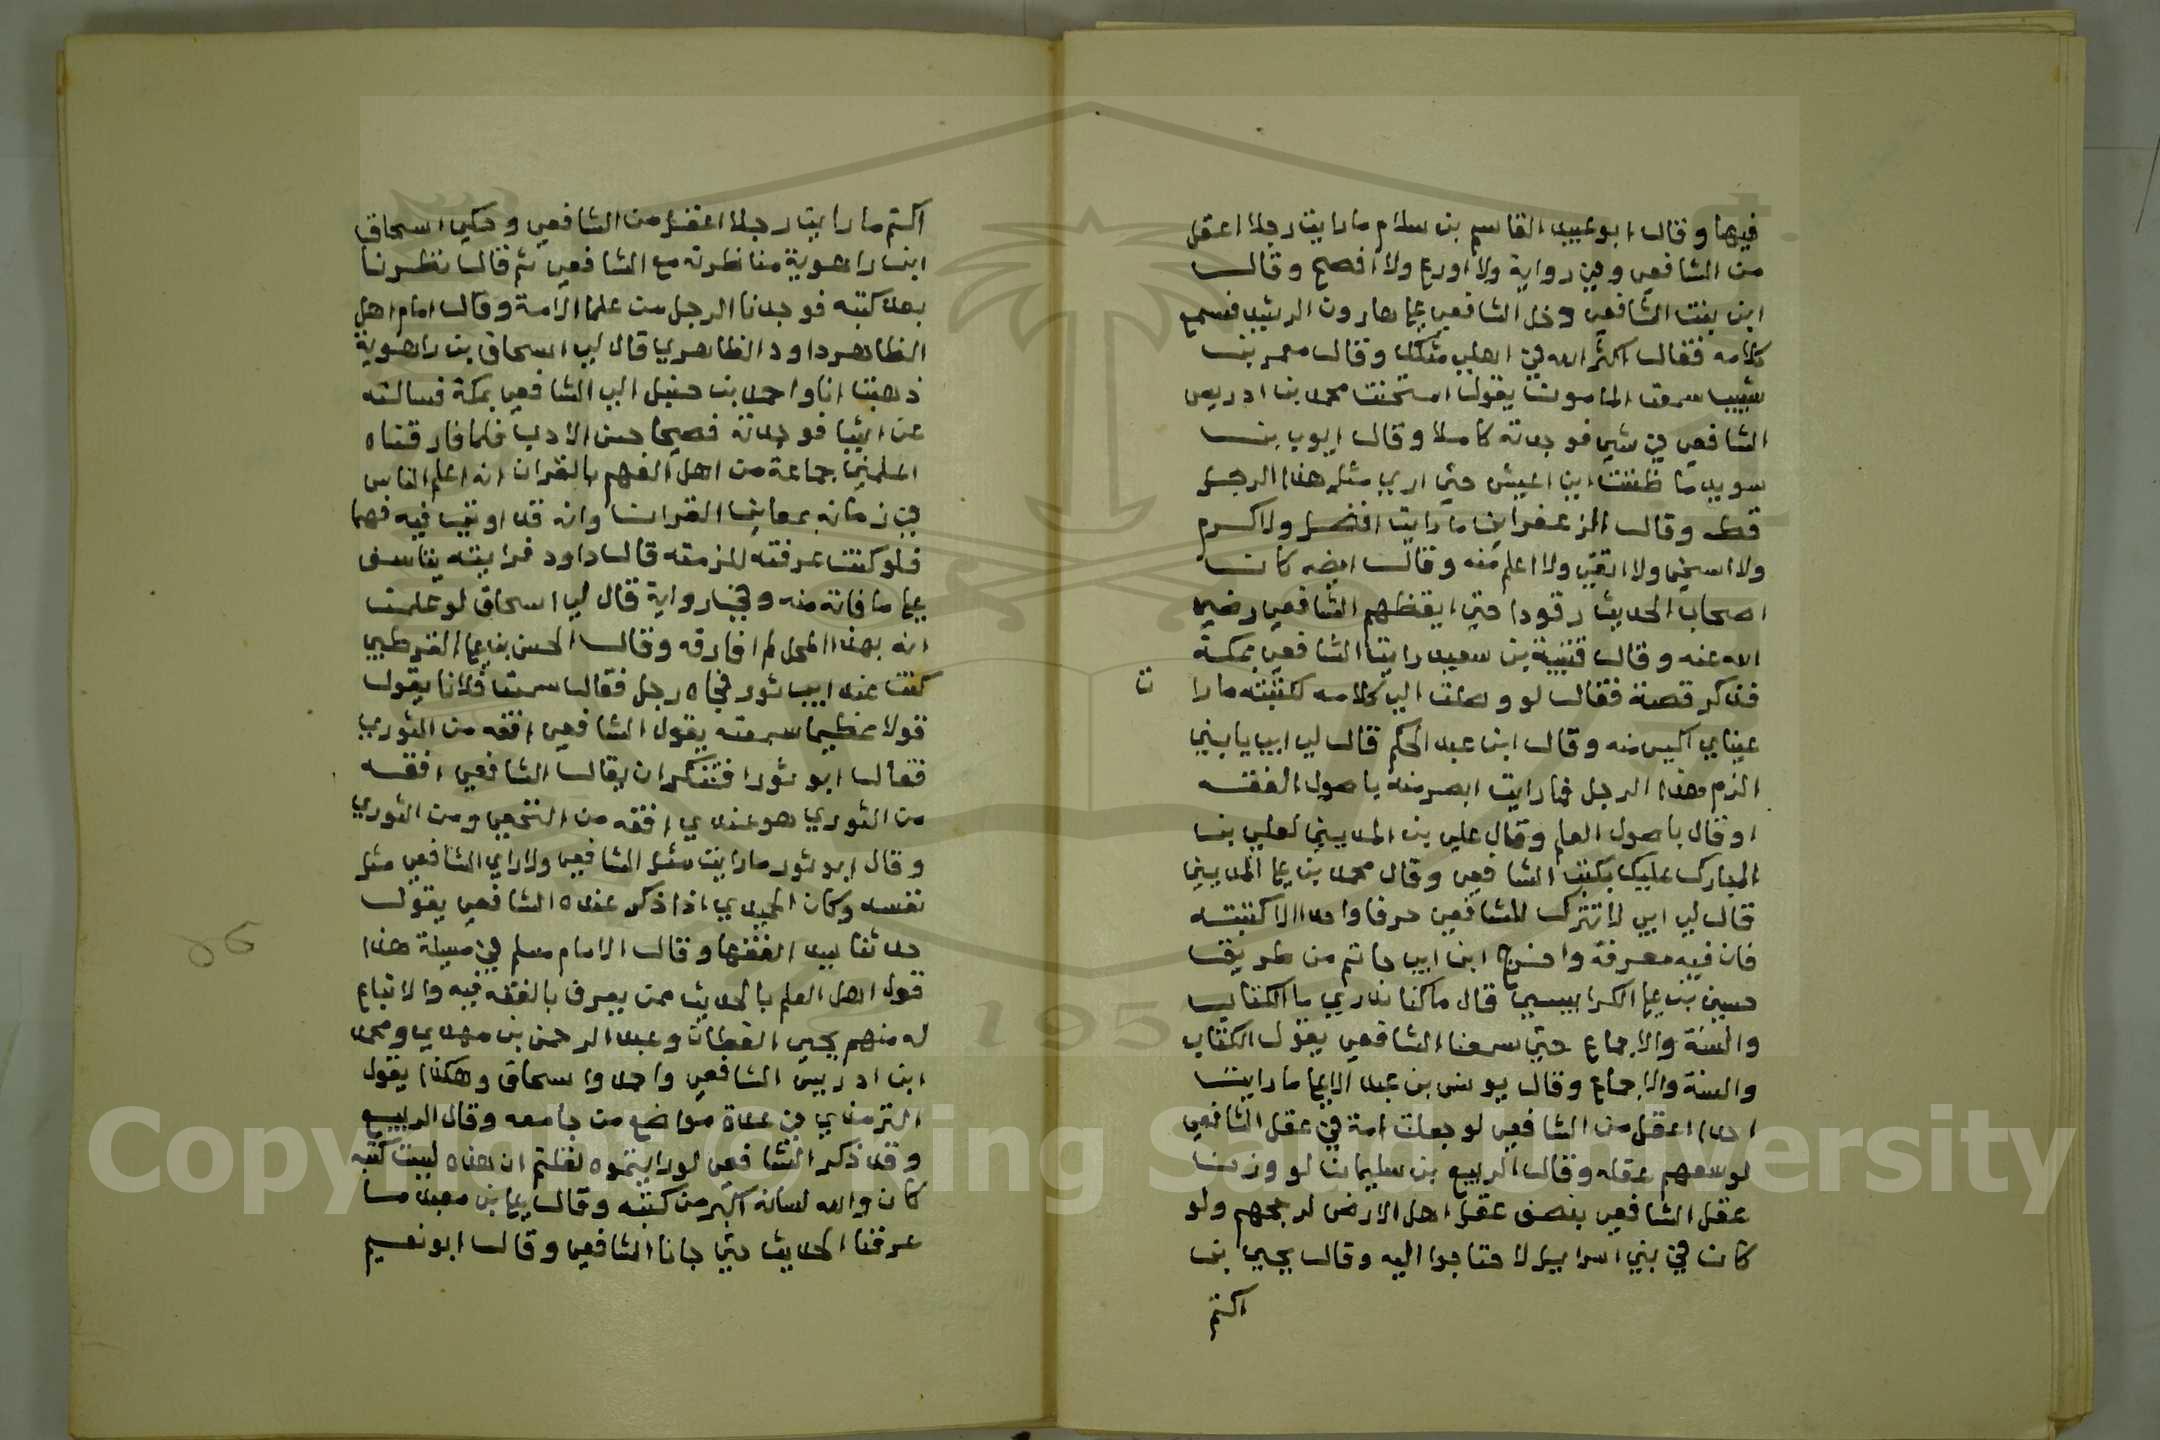 فيها وقال ابو عبيد القاسم بن سلام ما رايت رجلا اعقل
من الشافعي وفي رواية ولا اورع ولا افصح وقال
ابن بنت الشافعي دخل الشافعي على هارون الرشيد فسمع
كلامه فقال اكثر الله في اهلي مثلك وقال معمر بن
شبيب سمعت المامون يقول امتحنت محمد بن ادريس
الشافعي في شي فوجدته كاملا وقال ايوب بن
سويد ما ظننت اني اعيش حتي اري مثل هذا الرجل
قط وقال الزعفراني ما رايت افضل ولا اكرم
ولا اسخي ولا اتقي ولا اعلم منه وقال ايضه كان
اصحاب الحديث رقودا حتي ايقظهم الشافعي رضي
الله عنه وقال قتيبة بن سعيد رايت الشافعي بمكة
فذكر قصة فقال لو وصلت الي كلامه لكتبته ما را
ت
عيناي اكيس منه وقال ابن عبد الحكم قال لي ابي يا بني
الزم هذا الرجل فما رايت ابصر منه باصول الفقه
او قال باصول العلم وقال علي بن المديني لعلي بن
المبارك عليك بكتب الشافعي وقال محمد بن علي المديني
قال لي ابي لا تترك للشافعي حرفا واحدا الا كتبته
فان فيه معرفة واخرج ابن ابي حاتم من طريق
حسين بن علي الكرابيسي قال ما كنا ندري ما الكتاب
والسنة والاجماع حتي سمعنا الشافعي يقول الكتاب
والسنة والاجماع وقال يونس بن عبد الاعلي ما رايت
احدا اعقل من الشافعي لو جعلت امة في عقل الشافعي
لوسعهم عقله وقال الربيع بن سليمان لو وزن
عقل الشافعي بنصف عقل اهل الارض لرجحهم ولو
كان في بني اسراييل لاحتاجوا اليه وقال يحيي بن
اكتم
اكتم ما رايت رجلا اعقل من الشافعي وحكي اسحاق
ابن راهوية مناظرته مع الشافعي ثم قال نظرنا
بعد كتبه فوجدنا الرجل من علما الامة وقال امام اهل
الظاهر داود الظاهري قال لي اسحاق بن راهوية
ذهبت انا واحمد بن حنبل الي الشافعي بمكة فسالته
عن اشيا فوجدته فصيحا حسن الادب فلما فارقناه
اعلمني جماعة من اهل الفهم بالقران انه اعلم الناس
في زمانه بمعاني القران وانه قد اوتي فيه فهما
فلو كنت عرفته للزمته قال داود فرايته يتاسف
علي ما فاته منه وفي رواية قال لي اسحاق لو علمت
انه بهذا المحل لم افارقه وقال الحسن بن علي القرطبي
كنت عند ابي ثور فجاه رجل فقال سمعت فلانا يقول
قولا عظيما سمعته يقول الشافعي افقه من الثوري
فقال ابو ثور افتنكر ان يقال الشافعي افقه
من الثوري هو عندي افقه من النخعي ومن الثوري
وقال ابو ثور ما رايت مثل الشافعي ولا راي الشافعي مثل
نفسه وكان الحميدي اذا ذكر عنده الشافعي يقول
حدثنا سيد الفقها وقال الامام مسلم في مسيلة هذا
قول اهل العلم بالحديث ممن يعرف بالفقه فيه والاتباع
له منهم يحيي القطان وعبد الرحمن بن مهدي ومحمد
ابن ادريس الشافعي واحمد واسحاق وهكذا يقول
الترمذي في عدة مواضع من جامعه وقال الربيع
وقد ذكر الشافعي لو رايتموه لقلتم ان هذه ليست كتبه
كان والله لسانه اكبر من كتبه وقال علي بن معبد ما
عرفنا الحديث حتي جانا الشافعي وقال ابو نعيم
1957
Copyright © King Saud University